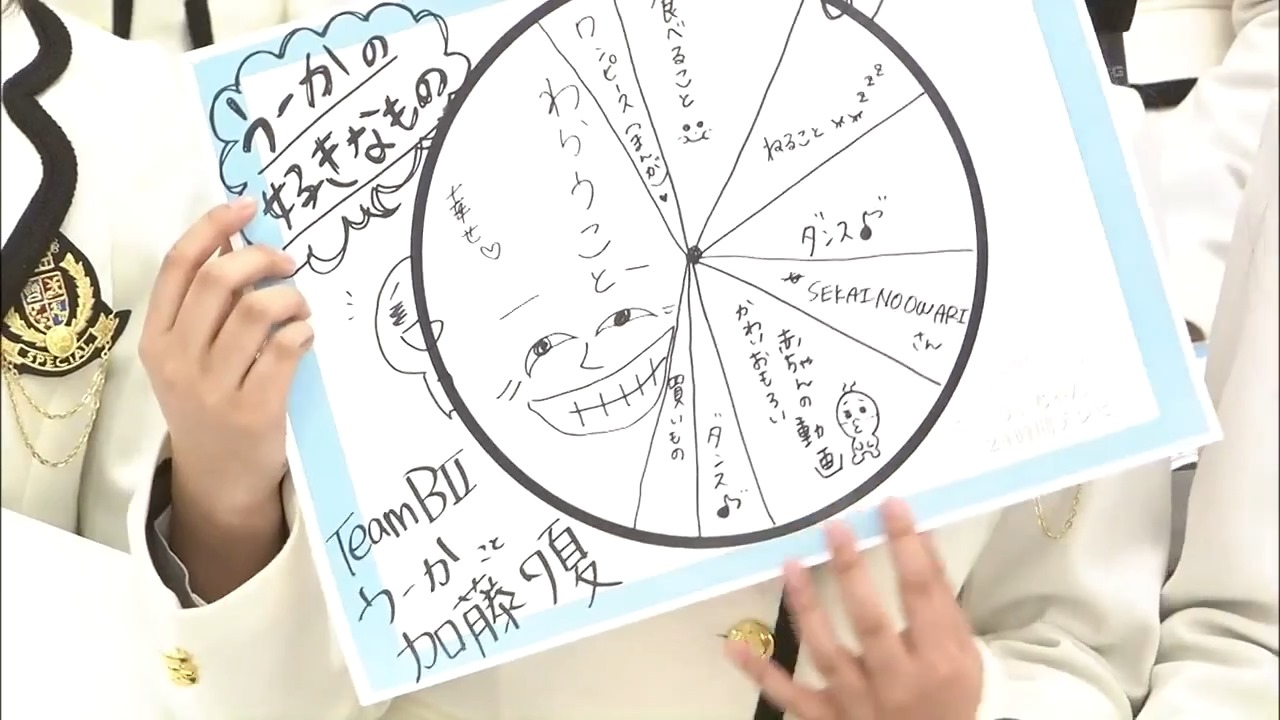 うーかの
好きなもの
食べること
ワンピース(まんが)♥
わらうこと
幸せ♡
zzz
ねること
ダンス♪
SEKAI NO OWARI
さん
赤ちゃんの動画
かわいおもろい
ダンス♪
買いもの
Team BII
うーか こと
加藤夕夏
SPECIAL